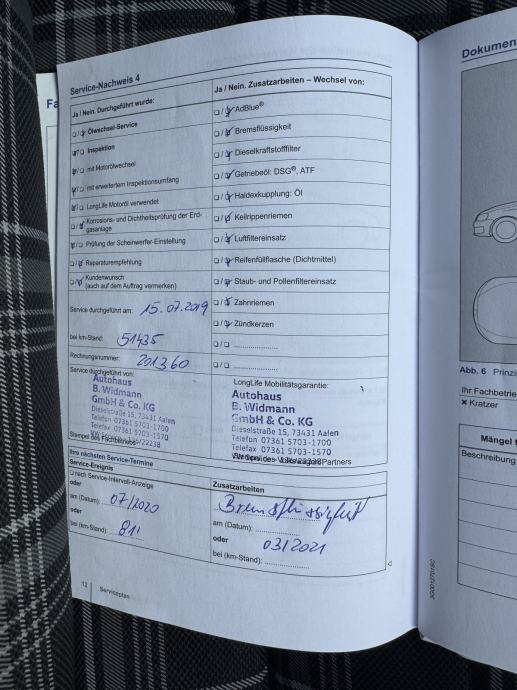 Service-Nachweis 4
Ja / Nein. Durchgeführt wurde:
Ölwechsel-Service
Inspektion
mit Motorölwechsel
mit erweitertem Inspektionsumfang
LongLife Motoröl verwendet
Korrosions- und Dichtheitsprüfung der Erd-
gasanlage
Prüfung der Scheinwerfer-Einstellung
Reparaturempfehlung
Kundenwunsch
(auch auf dem Auftrag vermerken)
Service durchgeführt am: 15.07.2019
bei km-Stand: 51435
Rechnungsnummer: 201360
Service durchgeführt von:
Autohaus
B. Widmann
GmbH & Co. KG
Dieselstraße 15, 73431 Aalen
Telefon 07361 5703-1700
Telefax 07361 5703-1570
Stempel des Fachbetriebs
Ja / Nein. Zusatzarbeiten – Wechsel von:
AdBlue®
Bremsflüssigkeit
Dieselkraftstofffilter
Getriebeöl: DSG®, ATF
Haldexkupplung: Öl
Keilrippenriemen
Luftfiltereinsatz
Reifenfüllflasche (Dichtmittel)
Staub- und Pollenfiltereinsatz
Zahnriemen
Zündkerzen
LongLife Mobilitätsgarantie:
Autohaus
B. Widmann
GmbH & Co. KG
Dieselstraße 15, 73431 Aalen
Telefon 07361 5703-1700
Telefax 07361 5703-1570
Volkswagen Partners
Ihre nächsten Service-Termine
Service-Ereignis
nach Service-Intervall-Anzeige
oder
am (Datum): 07/2020
oder
bei (km-Stand): 81'
Zusatzarbeiten
Bremsflüssigkeit
am (Datum):
oder 03/2021
bei (km-Stand):
12 Serviceplan
Dokumen
Abb. 6 Prinzi
Ihr Fachbetrie
× Kratzer
Mängel
Beschreibung